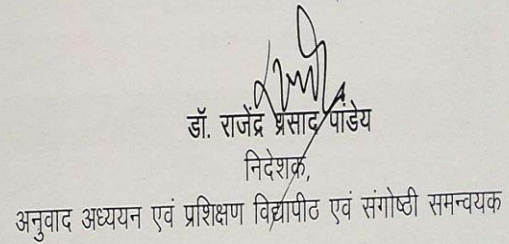 डॉ. राजेंद्र प्रसाद पांडेय
निदेशक,
अनुवाद अध्ययन एवं प्रशिक्षण विद्यापीठ एवं संगोष्ठी समन्वयक